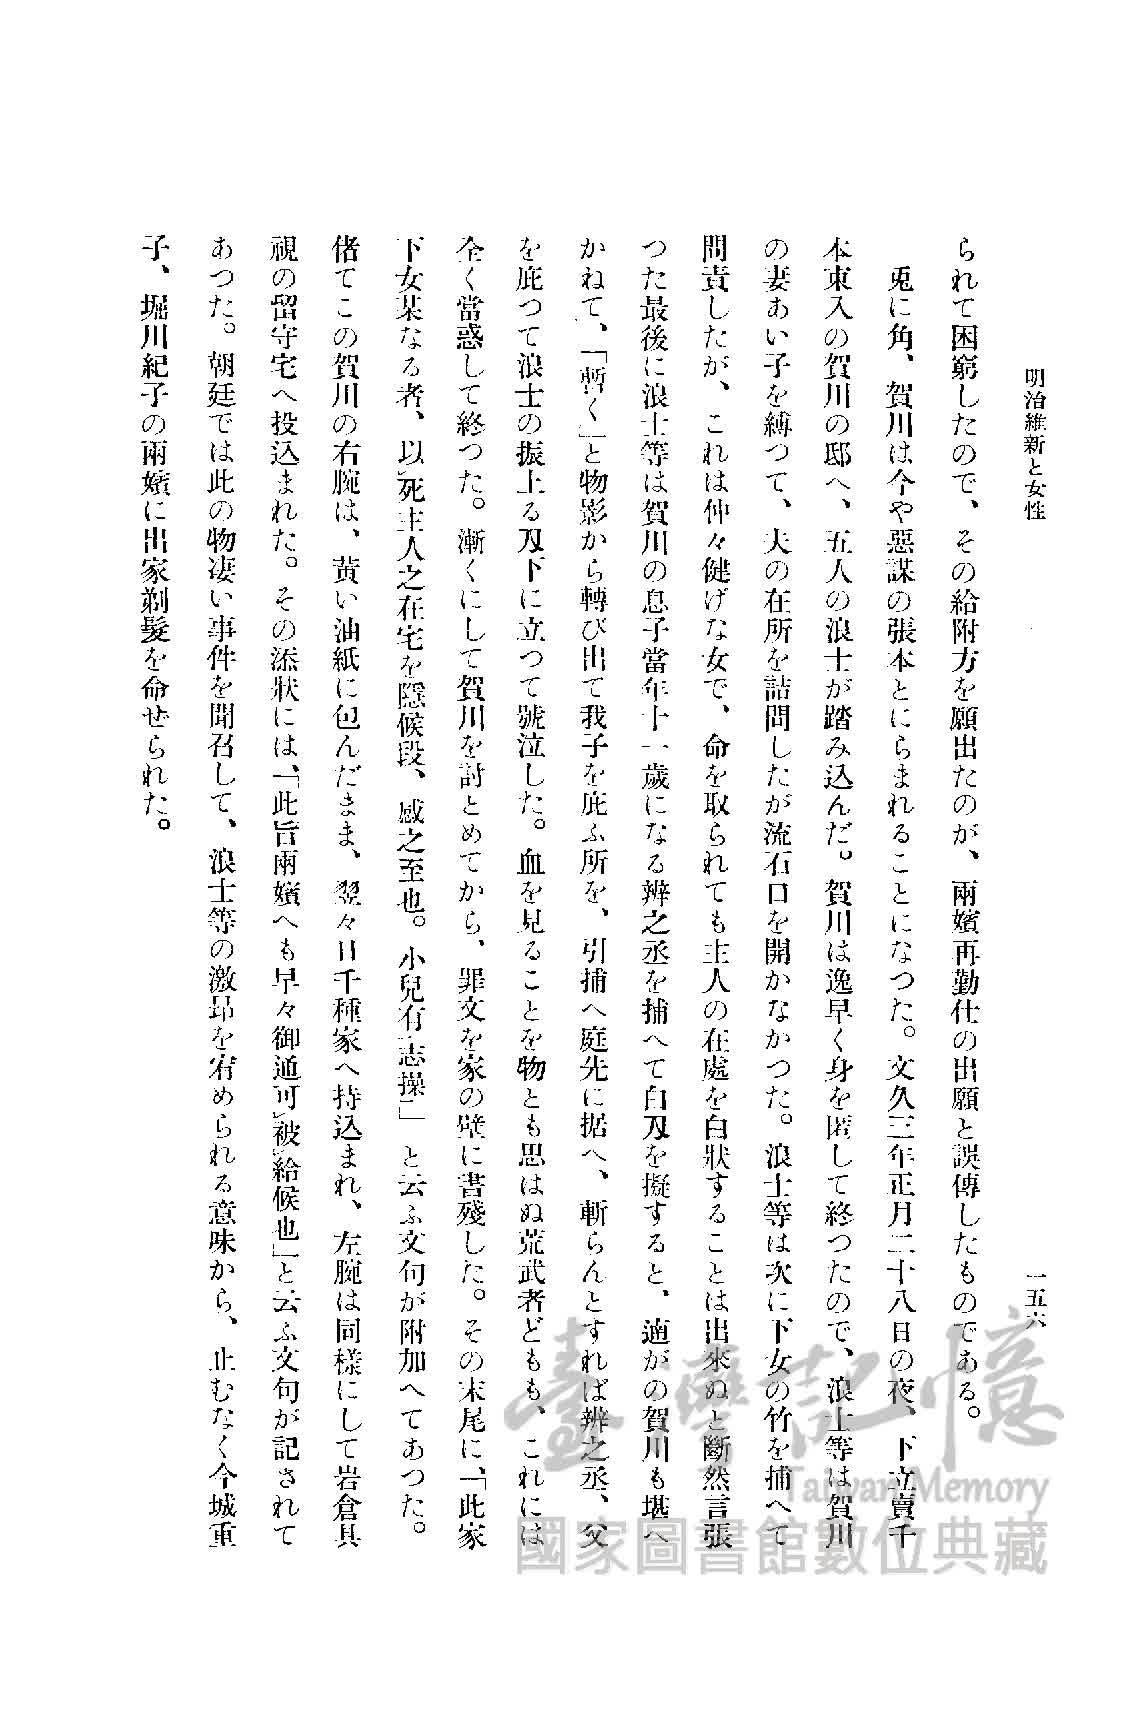 明治維新と女性
一五六
られて困窮したので、その給附方を願出たのが、兩嬪再勤仕の出願と誤傳したものである。
兎に角、賀川は今や惡謀の張本とにらまれることになつた。文久三年正月二十八日の夜、下立賣千
本東入の賀川の邸へ、五人の浪士が踏み込んだ。賀川は逸早く身を匿して終つたので、浪士等は賀川
の妻あい子を縛つて、夫の在所を詰問したが流石口を開かなかつた。浪士等は次に下女の竹を捕へて
問責したが、これは仲々健げな女で、命を取られても主人の在處を白狀することは出來ぬと斷然言張
つた最後に浪士等は賀川の息子當年十一歲になる辨之丞を捕へて白刄を擬すると、遉がの賀川も堪へ
かねて、「暫く」と物影から轉び出て我子を庇ふ所を、引捕へ庭先に据へ、斬らんとすれば辨之丞、父
を庇つて浪士の振上る刄下に立つて號泣した。血を見ることを物とも思はぬ荒武者どもも、これには
全く當惑して終つた。漸くにして賀川を討とめてから、罪文を家の壁に書殘した。その末尾に、「此家
下女某なる者、以㆑死主人之在宅を隱候段、感之至也。小兒有㆓志操㆒」と云ふ文句が附加へてあつた。
偖てこの賀川の右腕は、黃い油紙に包んだまま、翌々日千種家へ持込まれ、左腕は同樣にして岩倉具
視の留守宅へ投込まれた。その添狀には、「此旨兩嬪へも早々御通可㆑被㆑給候也」と云ふ文句が記されて
あつた。朝廷では此の物凄い事件を聞召して、浪士等の激昂を宥められる意味から、止むなく今城重
子、堀川紀子の兩嬪に出家剃髮を命せられた。
臺灣記憶
TaiwanMemory
國家圖書館數位典藏